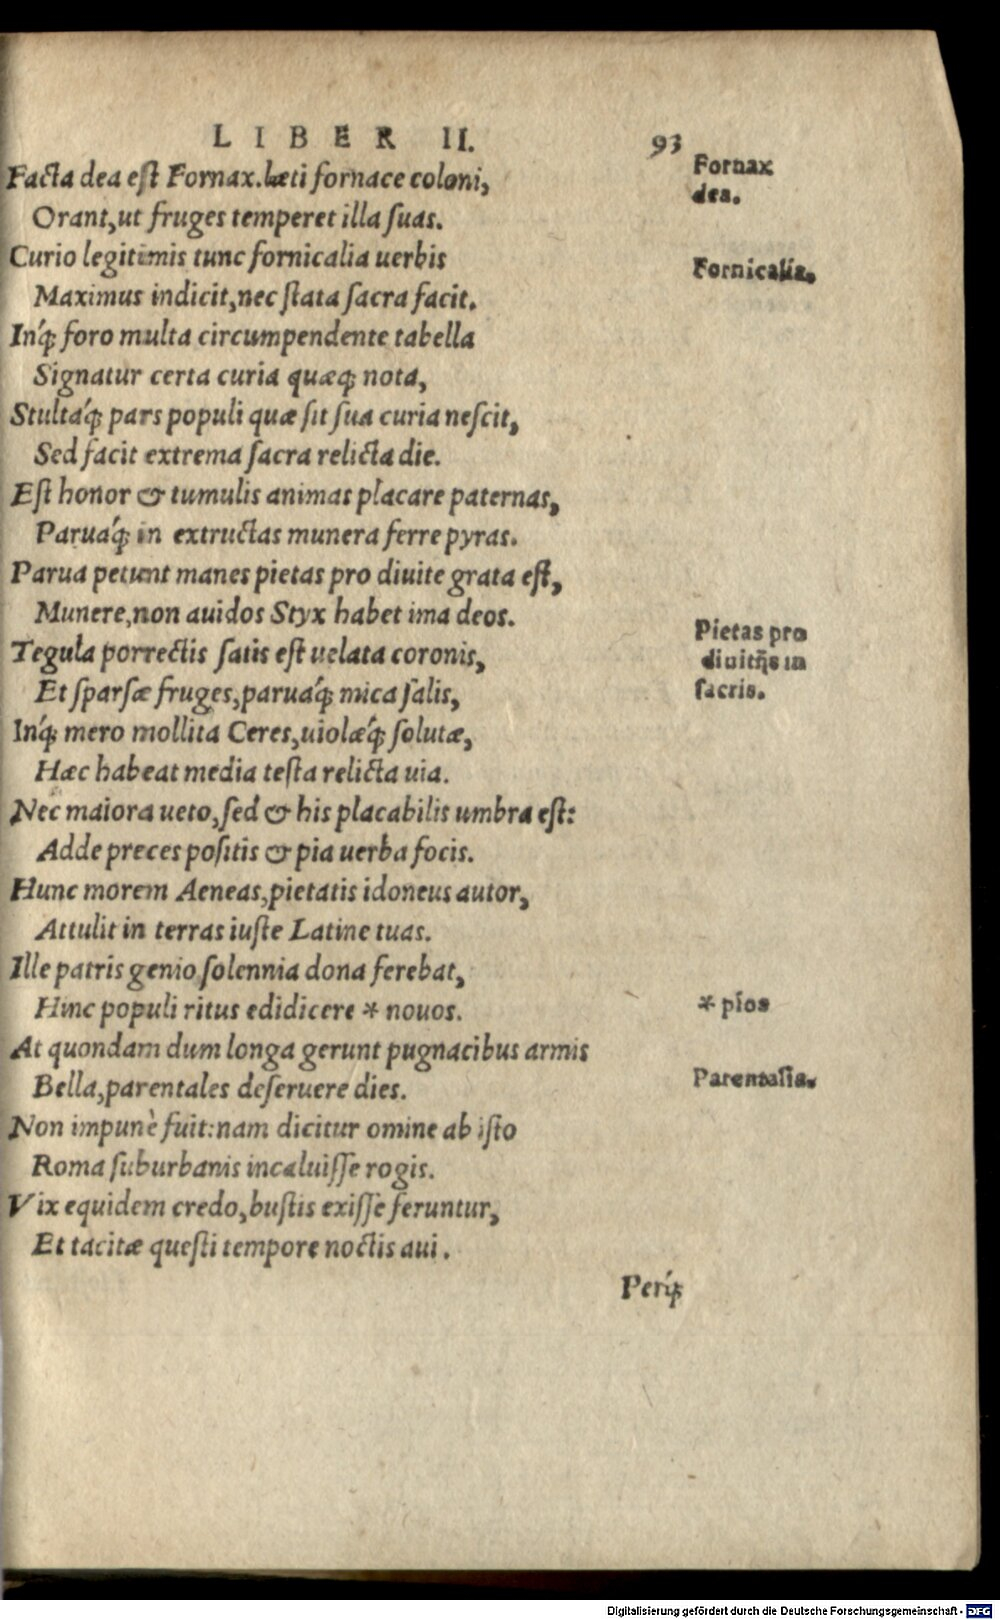 LIBER II. 93
Facta dea est Fornax. læti fornace coloni,
Orant, ut fruges temperet illa suas.
Curio legitimis tunc fornicalia uerbis
Maximus indicit, nec stata sacra facit.
Inq́; foro multa circumpendente tabella
Signatur certa curia quæq; nota,
Stultáq́; pars populi quæ sit sua curia nescit,
Sed facit extrema sacra relicta die.
Est honor & tumulis animas placare paternas,
Paruáq́; in extructas munera ferre pyras.
Parua petunt manes pietas pro diuite grata est,
Munere, non auidos Styx habet ima deos.
Tegula porrectis satis est uelata coronis,
Et sparsæ fruges, paruáq́; mica salis,
Inq́; mero mollita Ceres, uiolæq́; solutæ,
Hæc habeat media testa relicta uia.
Nec maiora ueto, sed & his placabilis umbra est:
Adde preces positis & pia uerba focis.
Hunc morem Aeneas, pietatis idoneus autor,
Attulit in terras iuste Latine tuas.
Ille patris genio solennia dona ferebat,
Hinc populi ritus edidicere * nouos.
At quondam dum longa gerunt pugnacibus armis
Bella, parentales deseruere dies.
Non impunè fuit: nam dicitur omine ab isto
Roma suburbanis incaluisse rogis.
Vix equidem credo, bustis exisse feruntur,
Et tacitæ questi tempore noctis aui.
Periq́;
Fornax
dea.
Fornicalia.
Pietas pro
diuitijs in
sacris.
* píos
Parentalia.
Digitalisierung gefördert durch die Deutsche Forschungsgemeinschaft - DFG